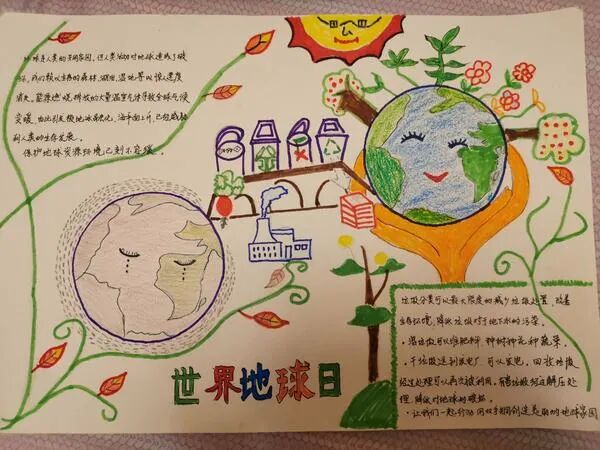 地球是人类的共同家园，但人类活动对地球造成了破
坏，我们赖以生存的森林、湖泊、湿地等以惊人速度
消失，能源燃烧，排放的大量温室气体导致全球气候
变暖，由此引发极地冰融化，海平面上升，已经威胁
到人类的生存发展。
保护地球资源环境已刻不容缓。
世界地球日
垃圾分类可以最大限度的减少垃圾处置，改善
生存环境，降低垃圾对于地下水的污染。
·湿垃圾可以堆肥料，种树种花种蔬菜。
·干垃圾送到发电厂可以发电，回收垃圾
经过处理可以再次被利用，有害垃圾经过解压处
理，降低对地球的破坏。
·让我们一起行动，创造美丽的地球家园